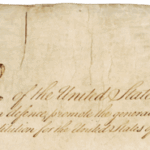 of the United State
defence, promote the general
for the United States of